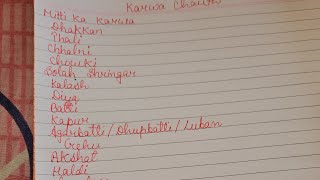 Karwa Chauth
Mitti Ka Karwa
Dhakkan
Thali
Chhalni
Chunki
Solah Shringar
Kalash
Diya
Batti
Kapur
Agarbatti/Dhupbatti/Luban
Gehu
Akshat
Haldi